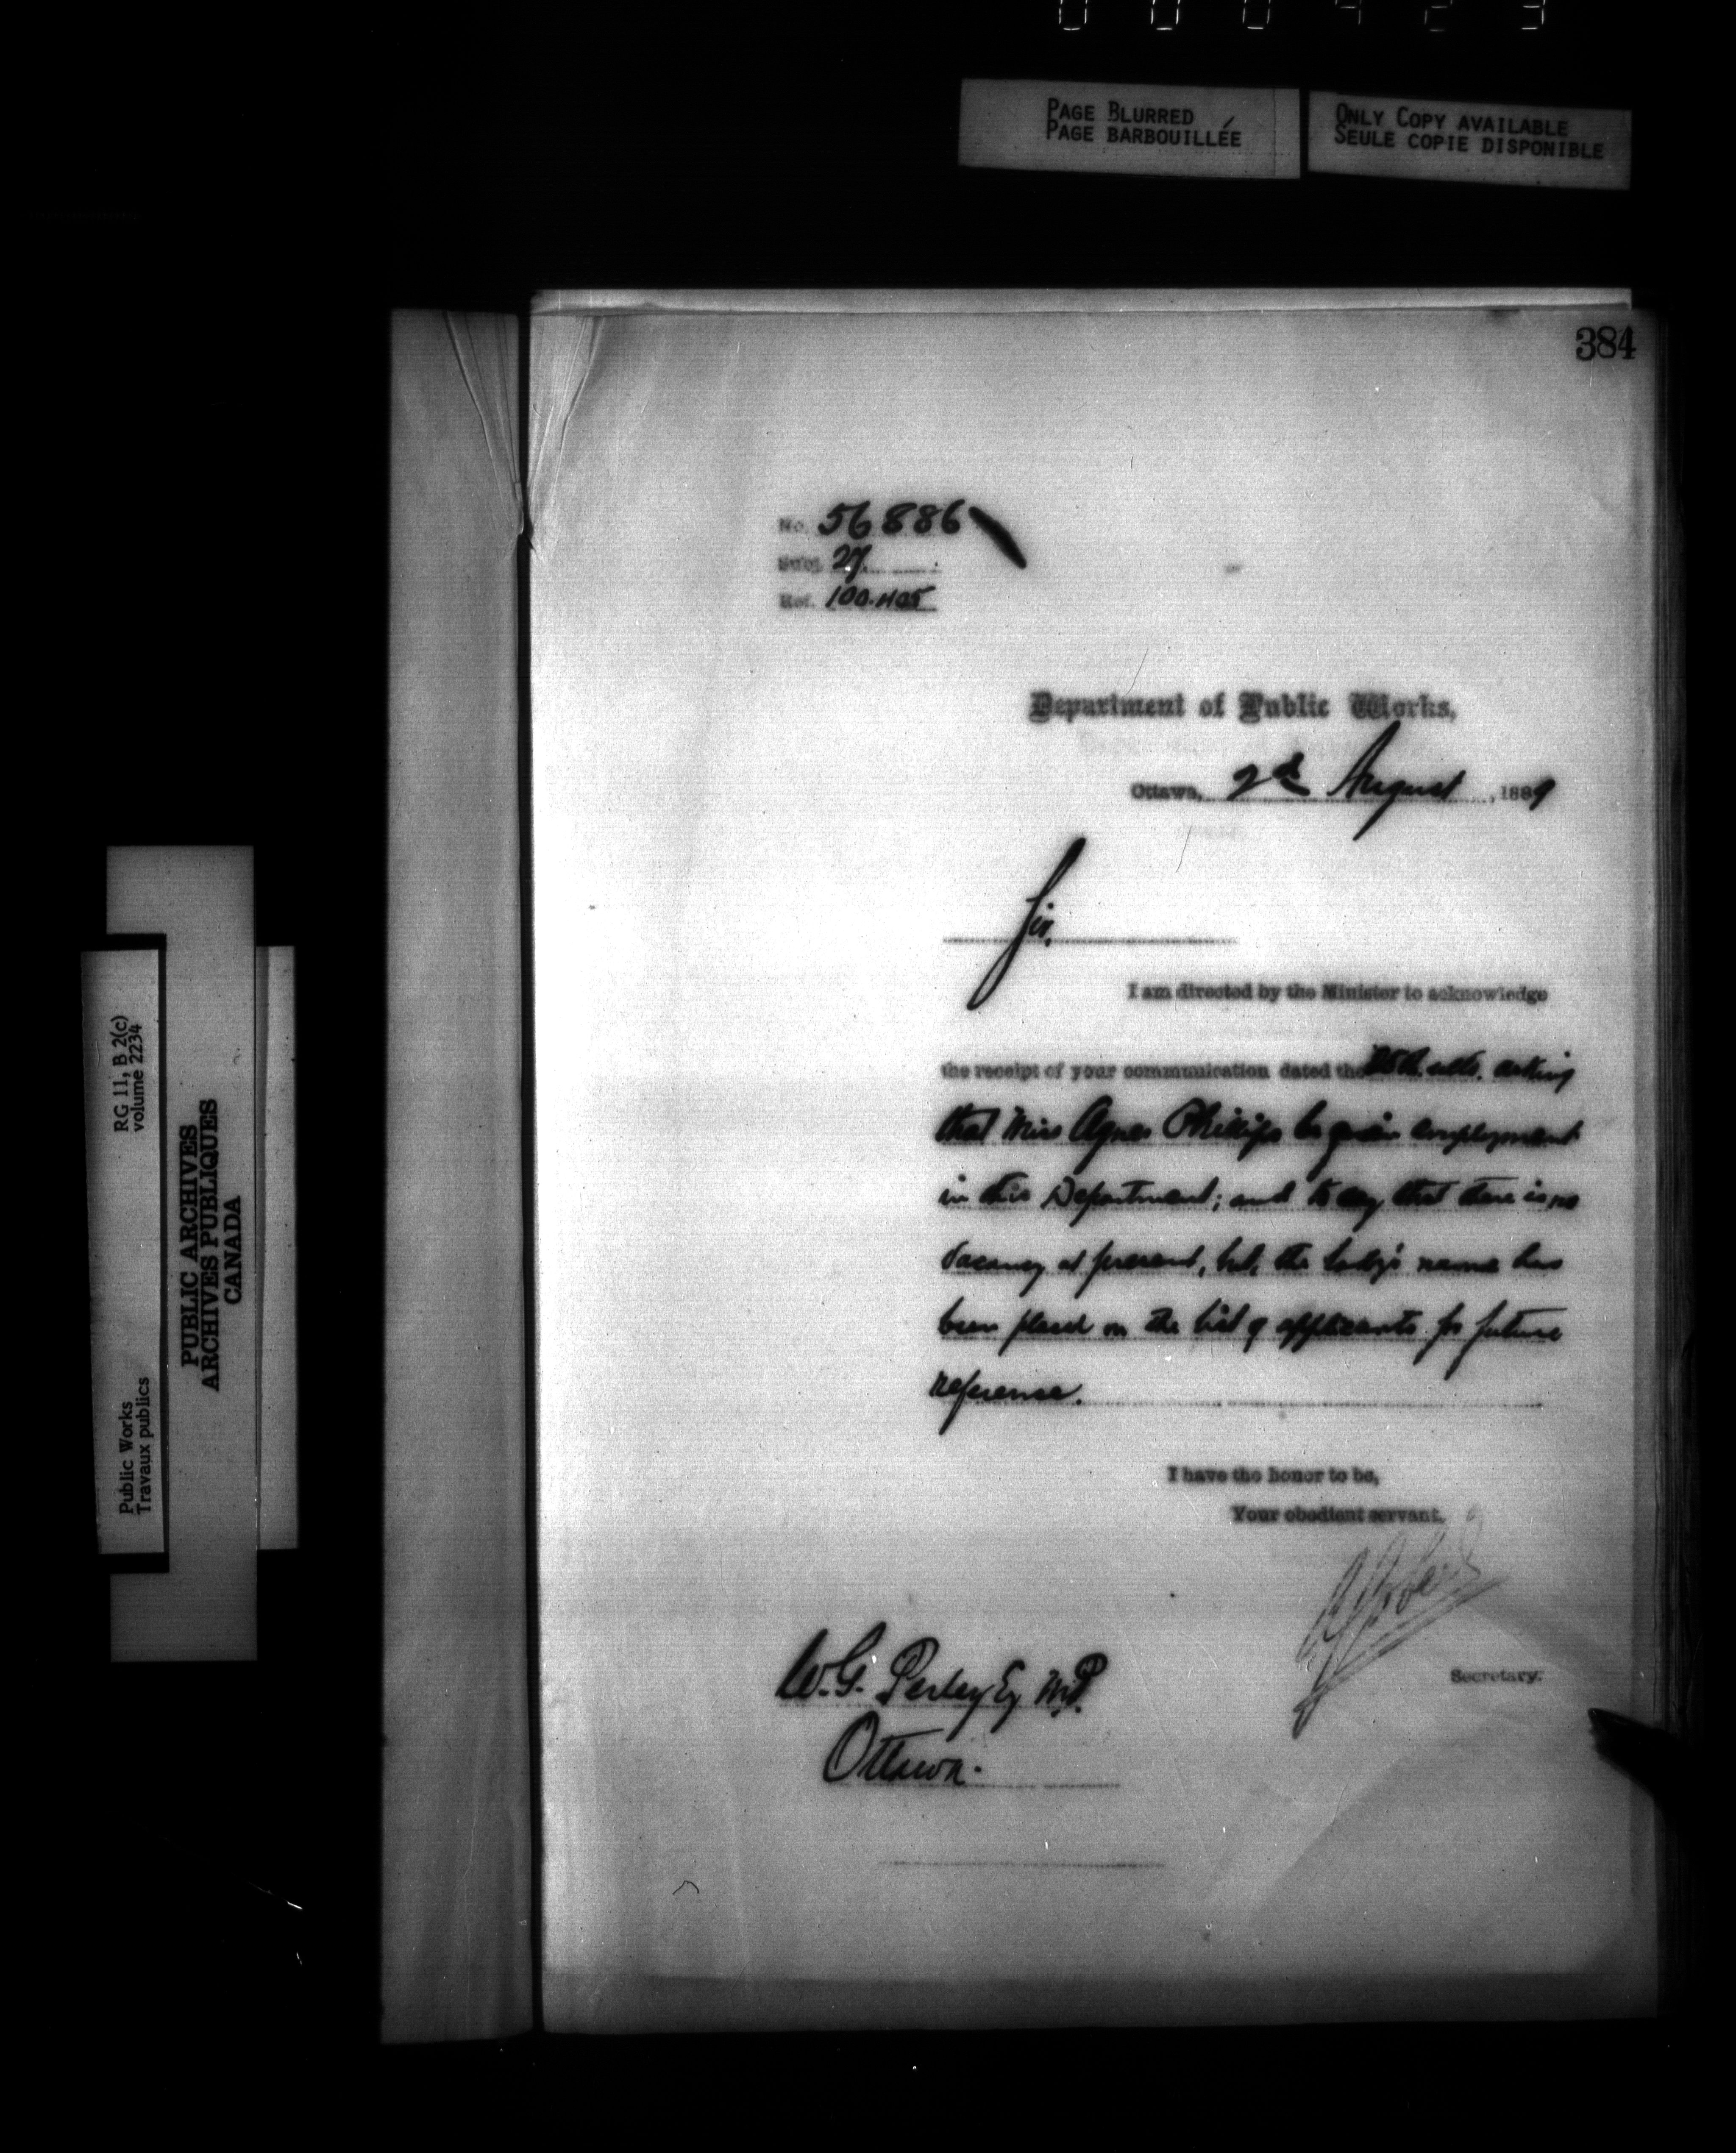 PAGE BLURRED
PAGE BARBOUILLÉE
ONLY COPY AVAILABLE
SEULE COPIE DISPONIBLE
384
No. 56886
Subj. 27
Ref. 100.405
Department of Public Works,
Ottawa, 2d August, 1889
Sir,
I am directed by the Minister to acknowledge
the receipt of your communication dated the 25th. ulto. asking
that Miss Agnes Phillips be given employment
in this Department; and to say that there is no
vacancy at present, but, the lady's name has
been placed on the list of applicants for future
reference.
I have the honor to be,
Your obedient servant,
Secretary.
W.G. Perley Esq M.P.
Ottawa.
RG 11, B 2(c)
volume 2234
Public Works
Travaux publics
PUBLIC ARCHIVES
ARCHIVES PUBLIQUES
CANADA